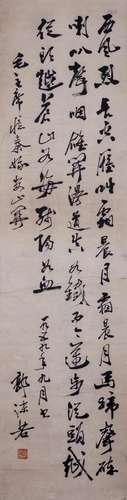 西風烈長空雁叫霜晨月霜晨月馬蹄聲碎
喇叭聲咽雄關漫道真如鐵而今邁步從頭越
從頭越蒼山如海殘陽如血
毛主席憶秦娥婁山關
年九月書
郭沫若